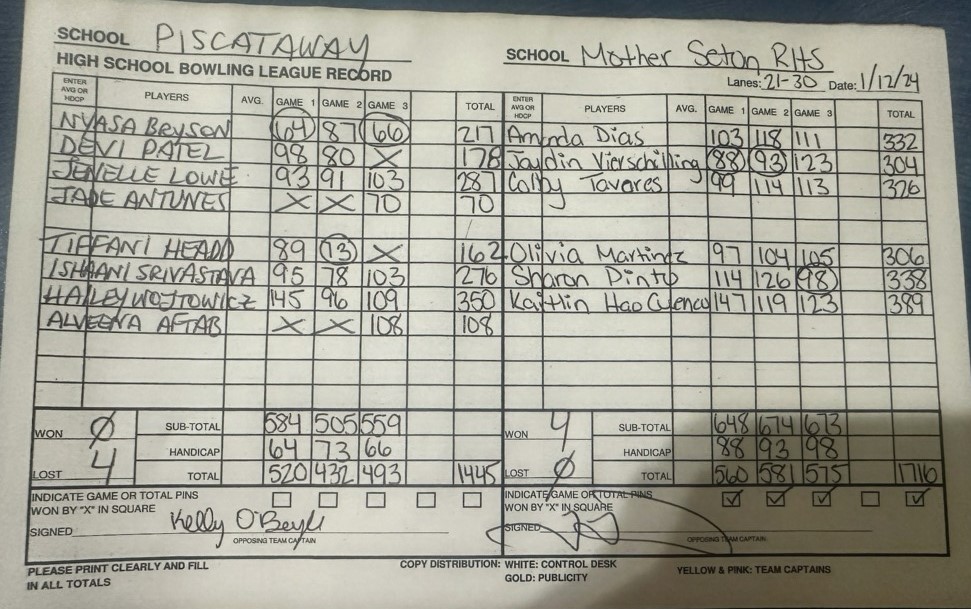 SCHOOL PISCATAWAY
HIGH SCHOOL BOWLING LEAGUE RECORD
ENTER AVG OR HDCP PLAYERS AVG. GAME 1 GAME 2 GAME 3 TOTAL
NYASA BRYSON 64 87 66 217
DEVI PATEL 98 80 X 178
JENELLE LOWE 93 91 103 287
JADE ANTUNES X X 70 70
TIFFANI HEADD 89 73 X 162
ISHAANI SRIVASTAVA 95 78 103 276
HAILEY WOJTOWICZ 145 96 109 350
ALVEENA AFTAB X X 108 108
WON 0 SUB-TOTAL 584 505 559
HANDICAP 64 73 66
LOST 4 TOTAL 520 432 493 1445
INDICATE GAME OR TOTAL PINS
WON BY "X" IN SQUARE
SIGNED Kelly O'Beyli
OPPOSING TEAM CAPTAIN
SCHOOL Mother Seton RHS
Lanes: 21-30 Date: 1/12/24
ENTER AVG OR HDCP PLAYERS AVG. GAME 1 GAME 2 GAME 3 TOTAL
Amanda Dias 103 118 111 332
Jaydin Vierschilling 88 93 123 304
Colby Tavares 99 114 113 326
Olivia Martinez 97 104 105 306
Sharon Pinto 114 126 98 338
Kaitlin Hao Cuenco 147 119 123 389
WON 4 SUB-TOTAL 648 674 673
HANDICAP 88 93 98
LOST 0 TOTAL 560 581 575 1716
INDICATE GAME OR TOTAL PINS
WON BY "X" IN SQUARE
SIGNED
OPPOSING TEAM CAPTAIN
PLEASE PRINT CLEARLY AND FILL
IN ALL TOTALS
COPY DISTRIBUTION: WHITE: CONTROL DESK
GOLD: PUBLICITY
YELLOW & PINK: TEAM CAPTAINS